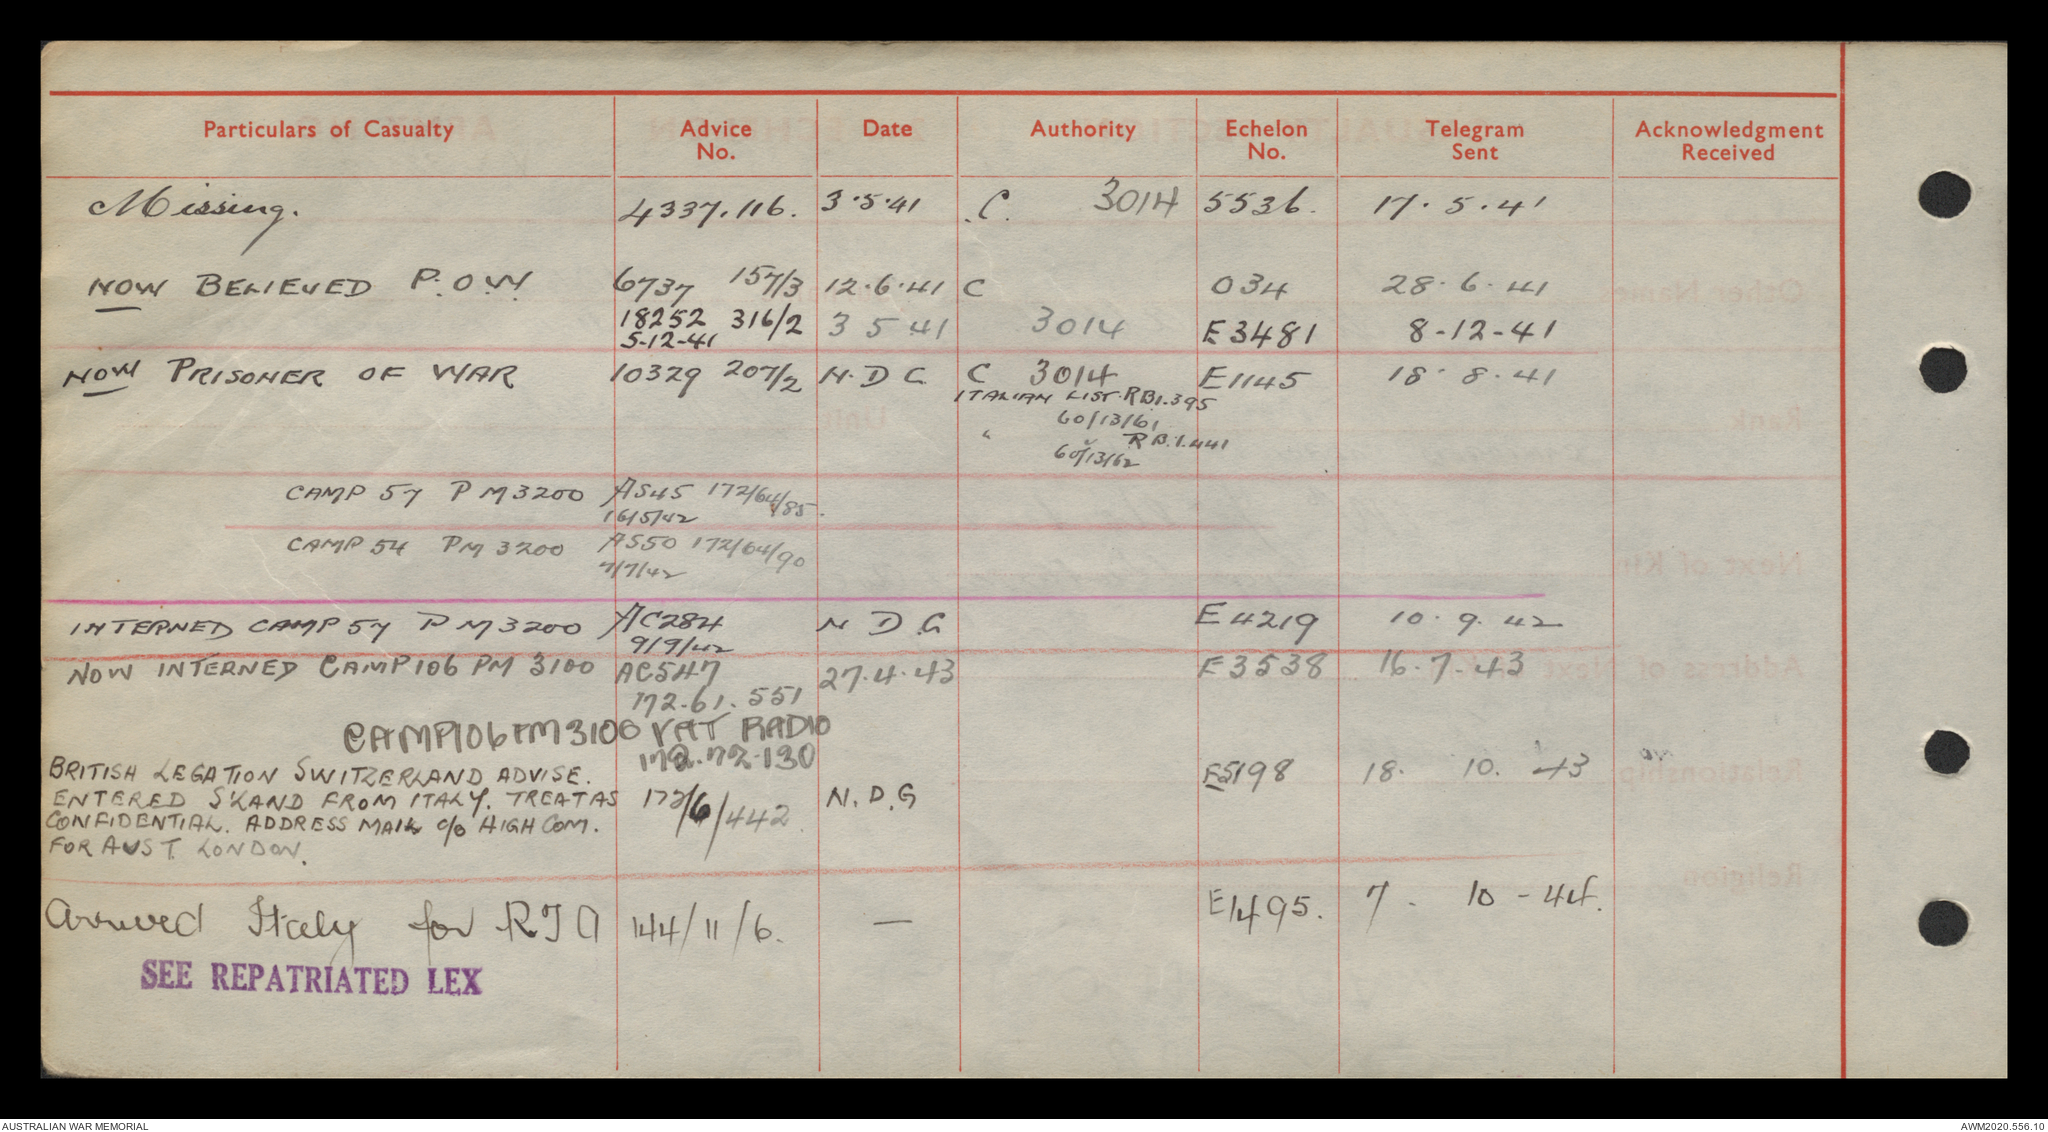 Particulars of Casualty Advice No. Date Authority Echelon No. Telegram Sent Acknowledgment Received
Missing. 4337.116. 3.5.41 C. 3014 5536. 17.5.41
NOW BELIEVED P.O.W. 6737 157/3 12.6.41 C 034 28.6.41
18252 316/2 3 5 41 3014 E3481 8-12-41
5-12-41
NOW PRISONER OF WAR 10329 207/2 N.D.G. C 3014 E1145 18.8.41
ITALIAN LIST. RB1.395
60/13/61
" RB.1.441
60/13/62
CAMP 57 PM 3200 AS45 172/64/85.
16/5/42
CAMP 54 PM 3200 AS50 172/64/90
7/7/42
INTERNED CAMP 57 PM 3200 AC284 N D G E4219 10.9.42
9/9/42
NOW INTERNED CAMP 106 PM 3100 AC547 27.4.43 E3538 16.7.43
172.61.551
CAMP 106 PM 3100 VAT RADIO
172.72.130
BRITISH LEGATION SWITZERLAND ADVISE. E5198 18. 10. 43
ENTERED S'LAND FROM ITALY. TREAT AS 172/6/442 N.D.G
CONFIDENTIAL. ADDRESS MAIL c/o HIGH COM.
FOR AUST. LONDON.
Arrived Italy for RTA 144/11/6. — E1495. 7. 10-44.
SEE REPATRIATED LEX
AUSTRALIAN WAR MEMORIAL AWM2020.556.10